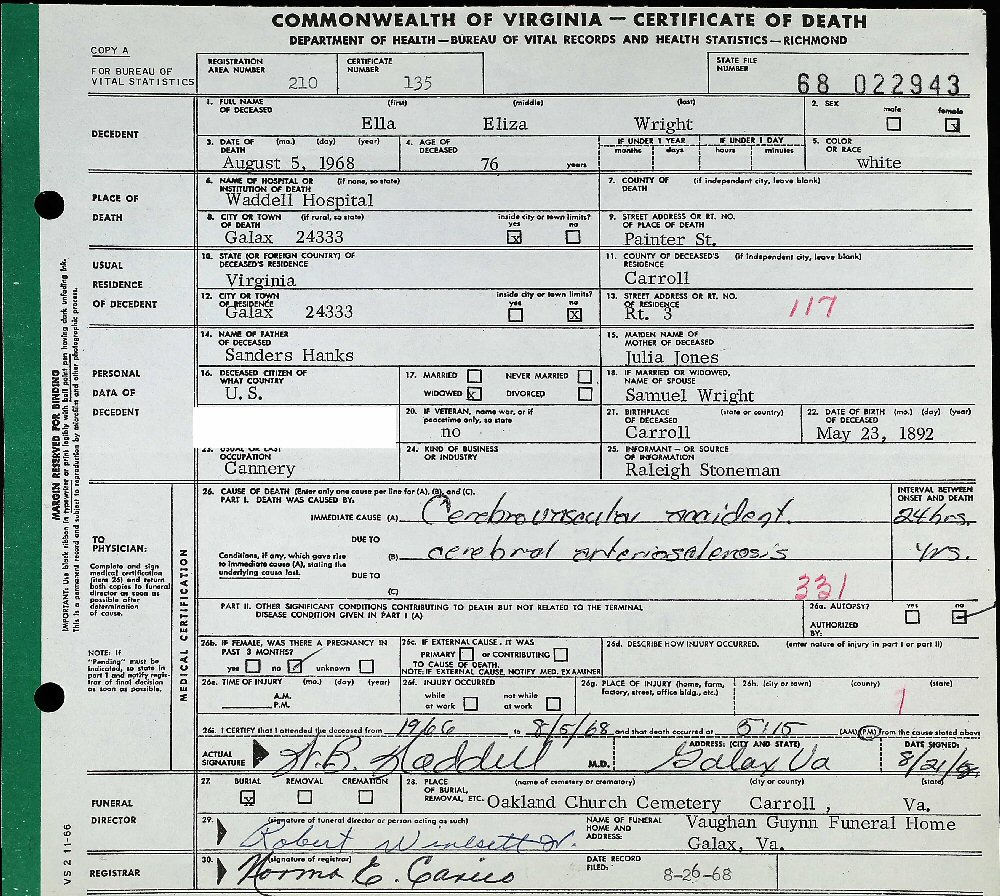 COMMONWEALTH OF VIRGINIA — CERTIFICATE OF DEATH
DEPARTMENT OF HEALTH—BUREAU OF VITAL RECORDS AND HEALTH STATISTICS—RICHMOND
COPY A
FOR BUREAU OF VITAL STATISTICS
REGISTRATION AREA NUMBER 210
CERTIFICATE NUMBER 135
STATE FILE NUMBER 68 022943
DECEDENT
1. FULL NAME OF DECEASED (first) (middle) (last)
Ella Eliza Wright
2. SEX male female x
3. DATE OF DEATH (mo.) (day) (year)
August 5, 1968
4. AGE OF DECEASED
76 years
IF UNDER 1 YEAR months days
IF UNDER 1 DAY hours minutes
5. COLOR OR RACE
white
PLACE OF DEATH
6. NAME OF HOSPITAL OR INSTITUTION OF DEATH (if none, so state)
Waddell Hospital
7. COUNTY OF DEATH (if independent city, leave blank)
8. CITY OR TOWN OF DEATH (if rural, so state)
Galax 24333
inside city or town limits? yes x no
9. STREET ADDRESS OR RT. NO. OF PLACE OF DEATH
Painter St.
USUAL RESIDENCE OF DECEDENT
10. STATE (OR FOREIGN COUNTRY) OF DECEASED'S RESIDENCE
Virginia
11. COUNTY OF DECEASED'S RESIDENCE (if independent city, leave blank)
Carroll
12. CITY OR TOWN OF RESIDENCE
Galax 24333
inside city or town limits? yes no x
13. STREET ADDRESS OR RT. NO. OF RESIDENCE
Rt. 3
117
PERSONAL DATA OF DECEDENT
14. NAME OF FATHER OF DECEASED
Sanders Hanks
15. MAIDEN NAME OF MOTHER OF DECEASED
Julia Jones
16. DECEASED CITIZEN OF WHAT COUNTRY
U. S.
17. MARRIED NEVER MARRIED
WIDOWED x DIVORCED
18. IF MARRIED OR WIDOWED, NAME OF SPOUSE
Samuel Wright
20. IF VETERAN, name war, or if peacetime only, so state
no
21. BIRTHPLACE OF DECEASED (state or country)
Carroll
22. DATE OF BIRTH OF DECEASED (mo.) (day) (year)
May 23, 1892
23. USUAL OR LAST OCCUPATION
Cannery
24. KIND OF BUSINESS OR INDUSTRY
25. INFORMANT — OR SOURCE OF INFORMATION
Raleigh Stoneman
MARGIN RESERVED FOR BINDING
IMPORTANT: Use black ribbon in typewriter or print legibly with ball point pen having dark unfading ink.
This is a permanent record and subject to reproduction by microfilm and other photographic process.
VS 2 11-66
MEDICAL CERTIFICATION
TO PHYSICIAN:
Complete and sign medical certification (item 26) and return both copies to funeral director as soon as possible after determination of cause.
NOTE: If "Pending" must be indicated, so state in part 1 and notify registrar of final decision as soon as possible.
26. CAUSE OF DEATH (Enter only one cause per line for (A), (B), and (C).
PART I. DEATH WAS CAUSED BY:
INTERVAL BETWEEN ONSET AND DEATH
IMMEDIATE CAUSE (A) Cerebrovascular accident. 24 hrs.
DUE TO
Conditions, if any, which gave rise to immediate cause (A), stating the underlying cause last.
(B) cerebral arteriosclerosis yrs.
DUE TO
(C)
331
PART II. OTHER SIGNIFICANT CONDITIONS CONTRIBUTING TO DEATH BUT NOT RELATED TO THE TERMINAL DISEASE CONDITION GIVEN IN PART I (A)
26a. AUTOPSY? yes no
AUTHORIZED BY:
26b. IF FEMALE, WAS THERE A PREGNANCY IN PAST 3 MONTHS?
yes no unknown
26c. IF EXTERNAL CAUSE, IT WAS
PRIMARY or CONTRIBUTING
TO CAUSE OF DEATH.
NOTE: IF EXTERNAL CAUSE, NOTIFY MED. EXAMINER
26d. DESCRIBE HOW INJURY OCCURRED. (enter nature of injury in part I or part II)
26e. TIME OF INJURY (mo.) (day) (year)
A.M.
P.M.
26f. INJURY OCCURRED
while at work not while at work
26g. PLACE OF INJURY (home, farm, factory, street, office bldg., etc.)
26h. (city or town) (county) (state)
1
26i. I CERTIFY that I attended the deceased from 1966 to 8/5/68 and that death occurred at 5:15 (AM) (PM) from the cause stated above
ACTUAL SIGNATURE W.B. Waddell M.D.
ADDRESS: (CITY AND STATE) Galax, Va
DATE SIGNED: 8/21/68
FUNERAL DIRECTOR
27. BURIAL x REMOVAL CREMATION
28. PLACE OF BURIAL, REMOVAL, ETC. (name of cemetery or crematory) (city or county) (state)
Oakland Church Cemetery Carroll , Va.
29. (signature of funeral director or person acting as such)
Robert
NAME OF FUNERAL HOME AND ADDRESS:
Vaughan Guynn Funeral Home
Galax, Va.
REGISTRAR
30. (signature of registrar)
Norma E. Carico
DATE RECORD FILED:
8-26-68